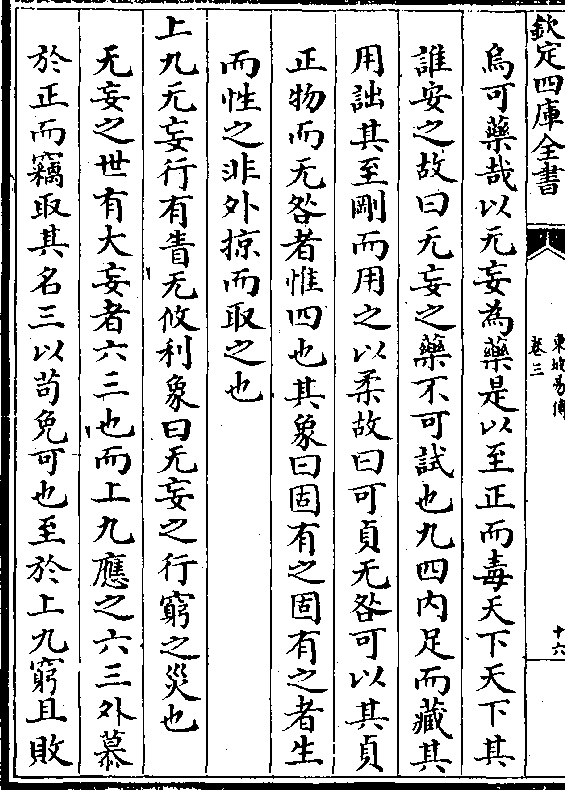 欽定四庫全書
東坡易傳
卷三
十六
烏可藥哉以无妄為藥是以至正而毒天下天下其
誰安之故曰无妄之藥不可試也九四内足而藏其
用詘其至剛而用之以柔故曰可貞无咎可以其貞
正物而无咎者惟四也其象曰固有之固有之者生
而性之非外掠而取之也
上九无妄行有眚无攸利象曰无妄之行窮之災也
无妄之世有大妄者六三也而上九應之六三外慕
於正而竊取其名三以苟免可也至於上九窮且敗